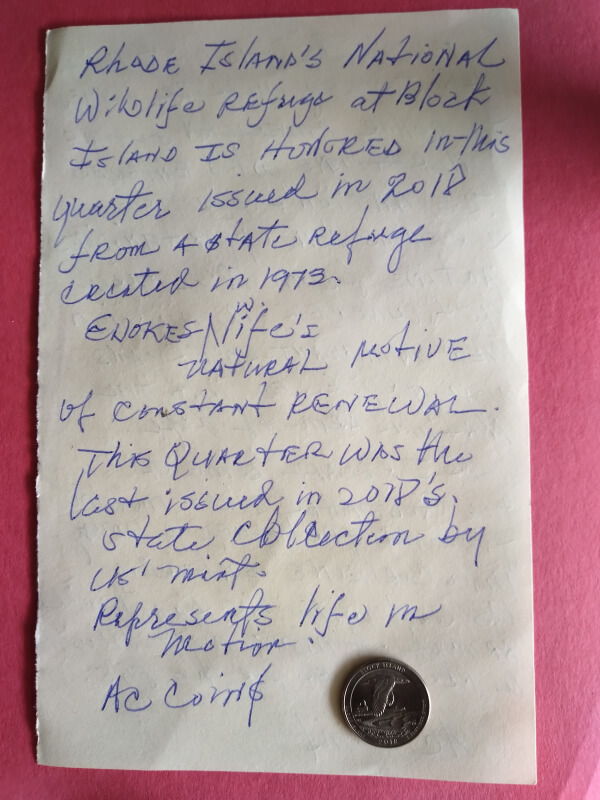 Rhode Island's National
Wildlife Refuge at Block
Island Is Honored in this
quarter issued in 2018
from A State Refuge
created in 1973.
W.
Evokes life's
natural motive
of constant Renewal.
This Quarter was the
last issued in 2018's.
state collection by
US' mint.
Represents life in
Motion.
AC Coins
BLOCK ISLAND
2018